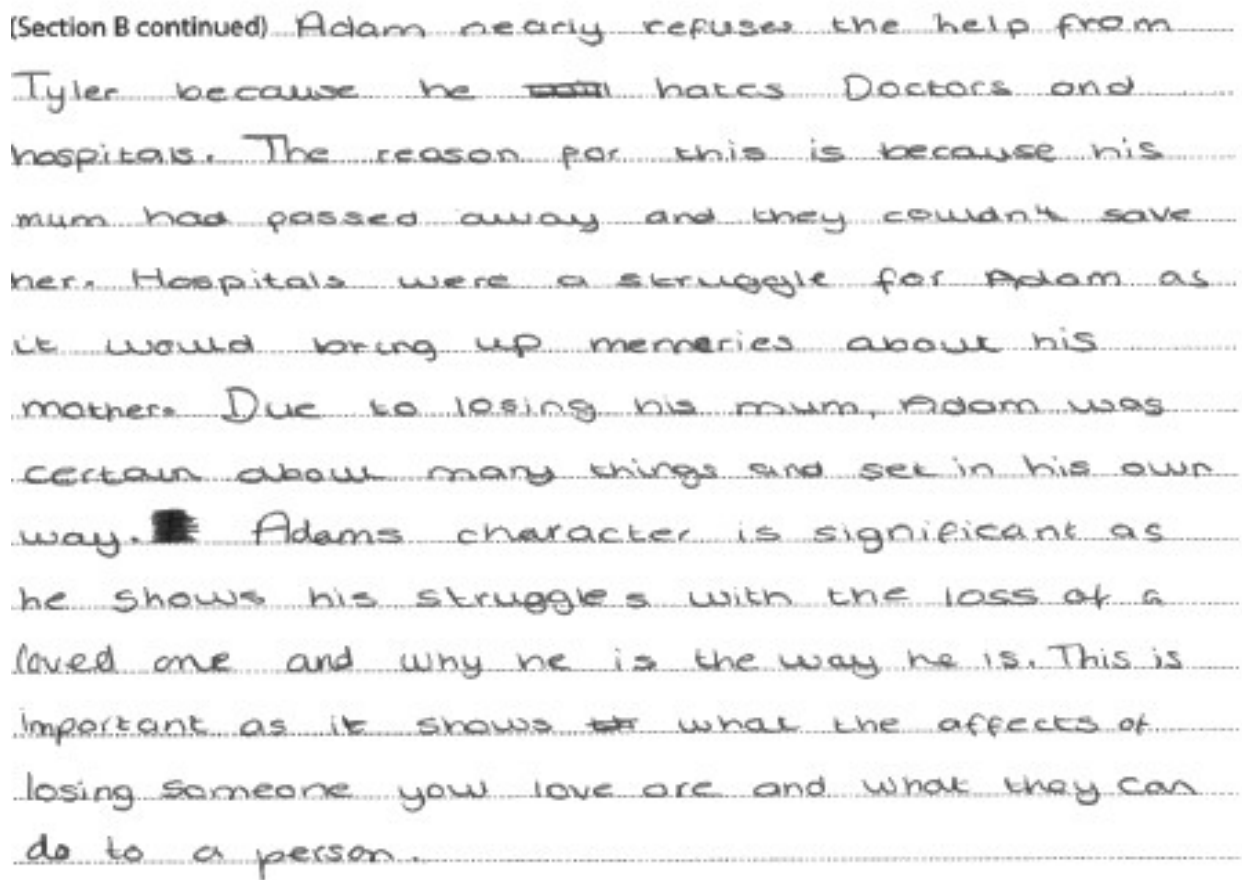 (Section B continued) Adam nearly refuses the help from
Tyler because he hates Doctors and
hospitals. The reason for this is because his
mum had passed away and they couldn't save
her. Hospitals were a struggle for Adam as
it would bring up memeries about his
mother. Due to losing his mum, Adam was
certain about many things and set in his own
way. Adams character is significant as
he shows his struggles with the loss of a
loved one and why he is the way he is. This is
important as it shows what the affects of
losing someone you love are and what they can
do to a person.